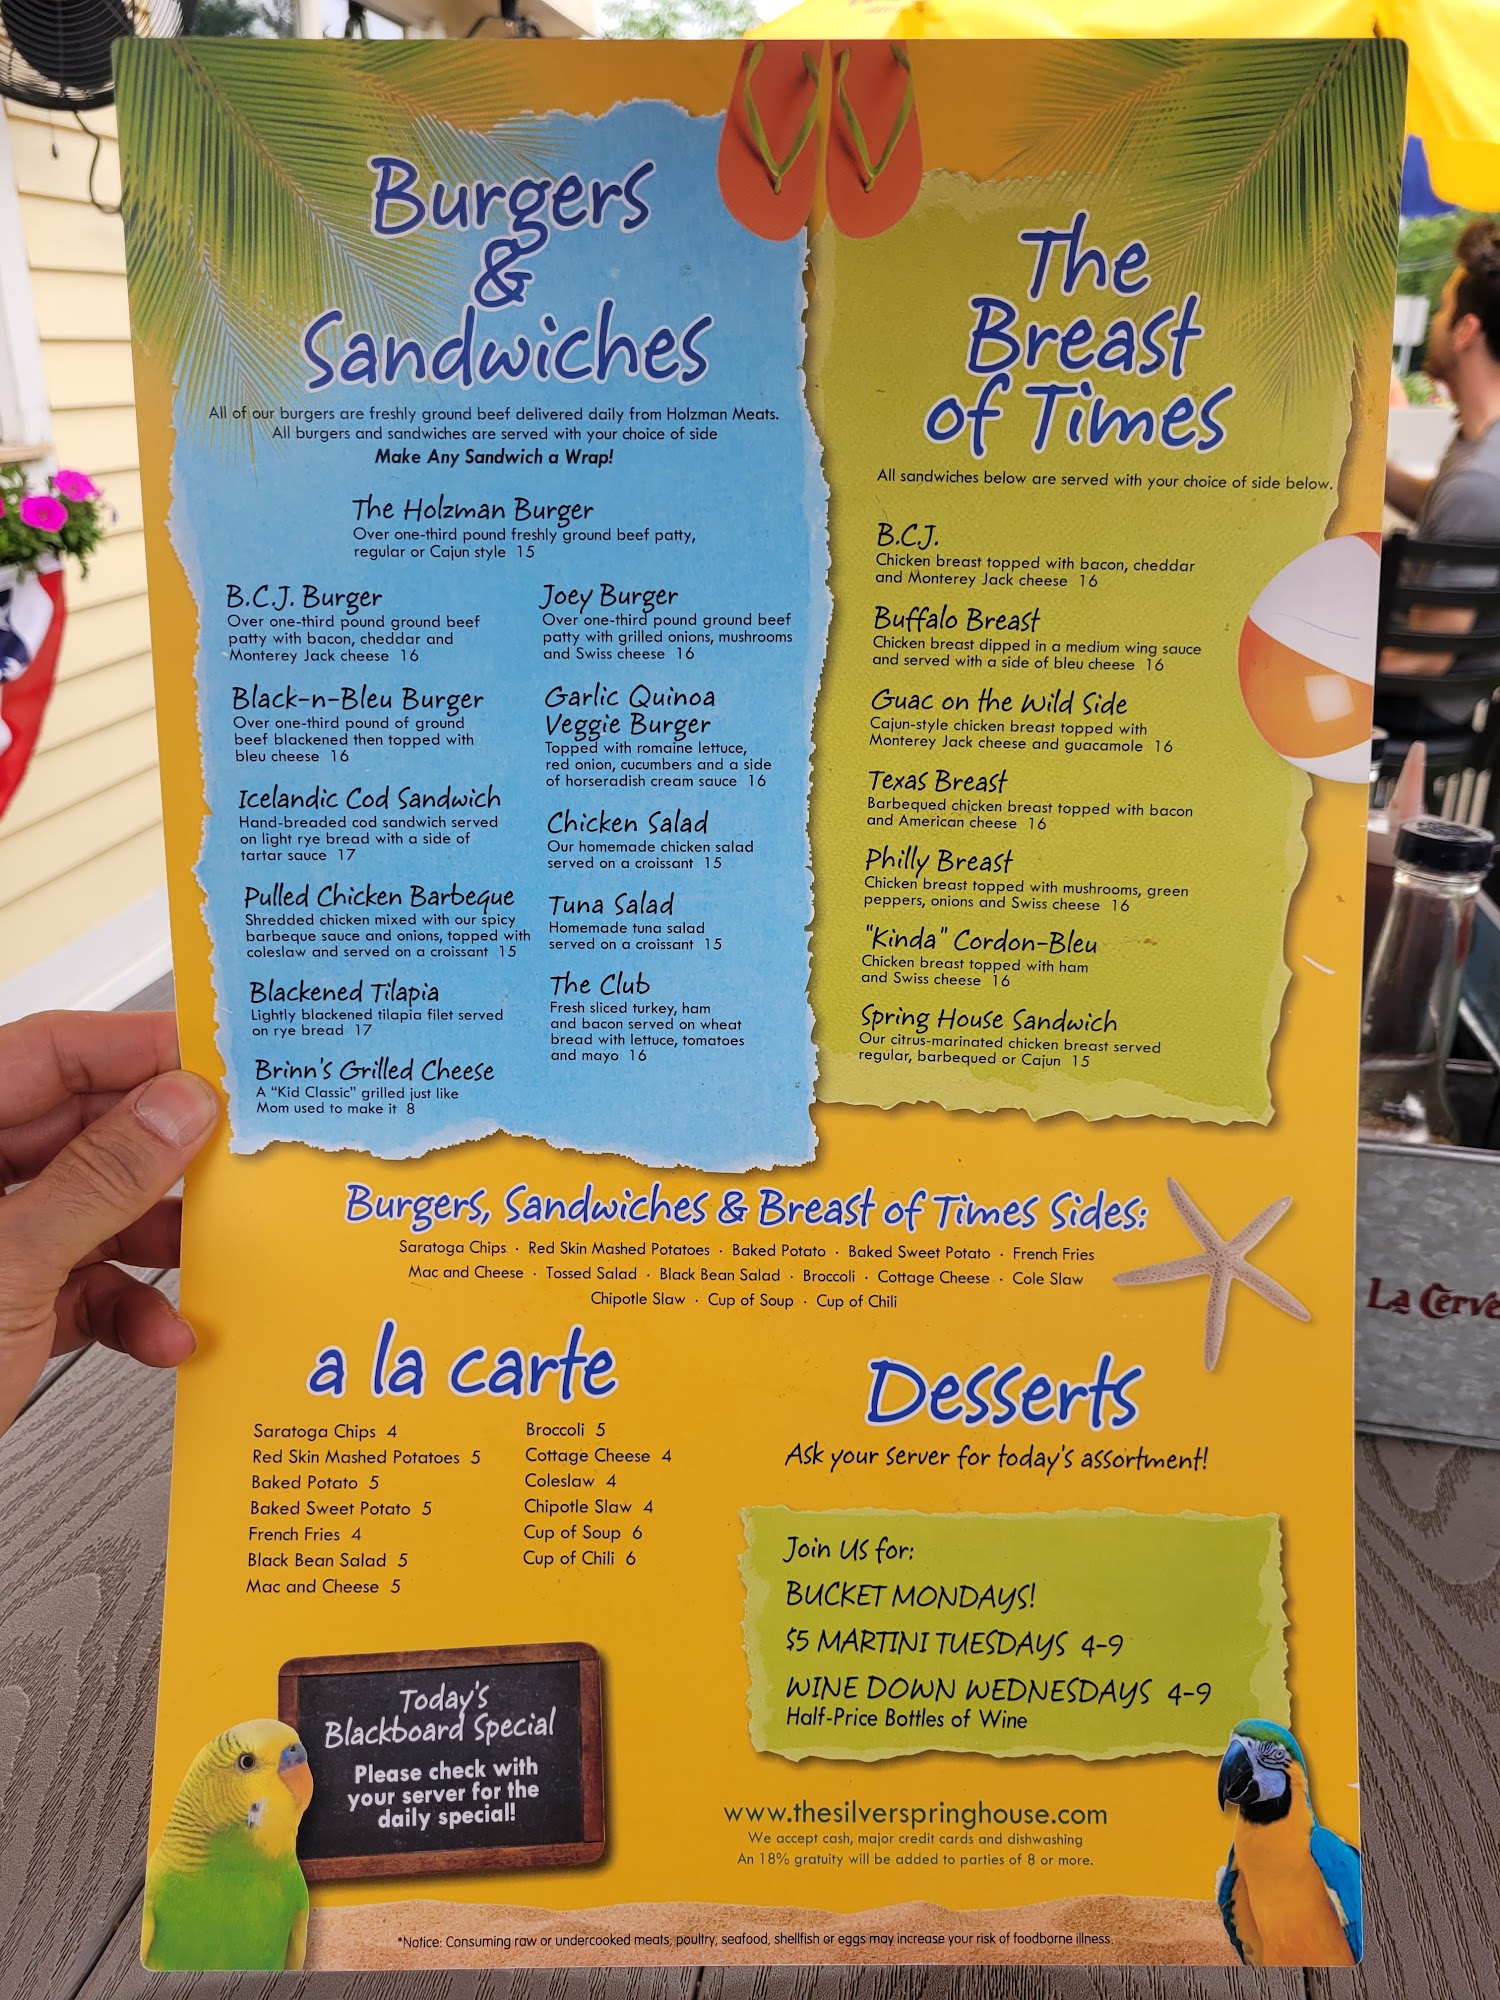 Burgers
&
Sandwiches
All of our burgers are freshly ground beef delivered daily from Holzman Meats.
All burgers and sandwiches are served with your choice of side
Make Any Sandwich a Wrap!
The Holzman Burger
Over one-third pound freshly ground beef patty,
regular or Cajun style 15
B.C.J. Burger
Over one-third pound ground beef
patty with bacon, cheddar and
Monterey Jack cheese 16
Black-n-Bleu Burger
Over one-third pound of ground
beef blackened then topped with
bleu cheese 16
Icelandic Cod Sandwich
Hand-breaded cod sandwich served
on light rye bread with a side of
tartar sauce 17
Pulled Chicken Barbeque
Shredded chicken mixed with our spicy
barbeque sauce and onions, topped with
coleslaw and served on a croissant 15
Blackened Tilapia
Lightly blackened tilapia filet served
on rye bread 17
Brinn's Grilled Cheese
A "Kid Classic" grilled just like
Mom used to make it 8
Joey Burger
Over one-third pound ground beef
patty with grilled onions, mushrooms
and Swiss cheese 16
Garlic Quinoa
Veggie Burger
Topped with romaine lettuce,
red onion, cucumbers and a side
of horseradish cream sauce 16
Chicken Salad
Our homemade chicken salad
served on a croissant 15
Tuna Salad
Homemade tuna salad
served on a croissant 15
The Club
Fresh sliced turkey, ham
and bacon served on wheat
bread with lettuce, tomatoes
and mayo 16
The
Breast
of Times
All sandwiches below are served with your choice of side below.
B.C.J.
Chicken breast topped with bacon, cheddar
and Monterey Jack cheese 16
Buffalo Breast
Chicken breast dipped in a medium wing sauce
and served with a side of bleu cheese 16
Guac on the Wild Side
Cajun-style chicken breast topped with
Monterey Jack cheese and guacamole 16
Texas Breast
Barbequed chicken breast topped with bacon
and American cheese 16
Philly Breast
Chicken breast topped with mushrooms, green
peppers, onions and Swiss cheese 16
"Kinda" Cordon-Bleu
Chicken breast topped with ham
and Swiss cheese 16
Spring House Sandwich
Our citrus-marinated chicken breast served
regular, barbequed or Cajun 15
Burgers, Sandwiches & Breast of Times Sides:
Saratoga Chips · Red Skin Mashed Potatoes · Baked Potato · Baked Sweet Potato · French Fries
Mac and Cheese · Tossed Salad · Black Bean Salad · Broccoli · Cottage Cheese · Cole Slaw
Chipotle Slaw · Cup of Soup · Cup of Chili
a la carte
Saratoga Chips 4
Red Skin Mashed Potatoes 5
Baked Potato 5
Baked Sweet Potato 5
French Fries 4
Black Bean Salad 5
Mac and Cheese 5
Broccoli 5
Cottage Cheese 4
Coleslaw 4
Chipotle Slaw 4
Cup of Soup 6
Cup of Chili 6
Desserts
Ask your server for today's assortment!
Join Us for:
BUCKET MONDAYS!
$5 MARTINI TUESDAYS 4-9
WINE DOWN WEDNESDAYS 4-9
Half-Price Bottles of Wine
Today's
Blackboard Special
Please check with
your server for the
daily special!
www.thesilverspringhouse.com
We accept cash, major credit cards and dishwashing
An 18% gratuity will be added to parties of 8 or more.
*Notice: Consuming raw or undercooked meats, poultry, seafood, shellfish or eggs may increase your risk of foodborne illness.
La Cerve